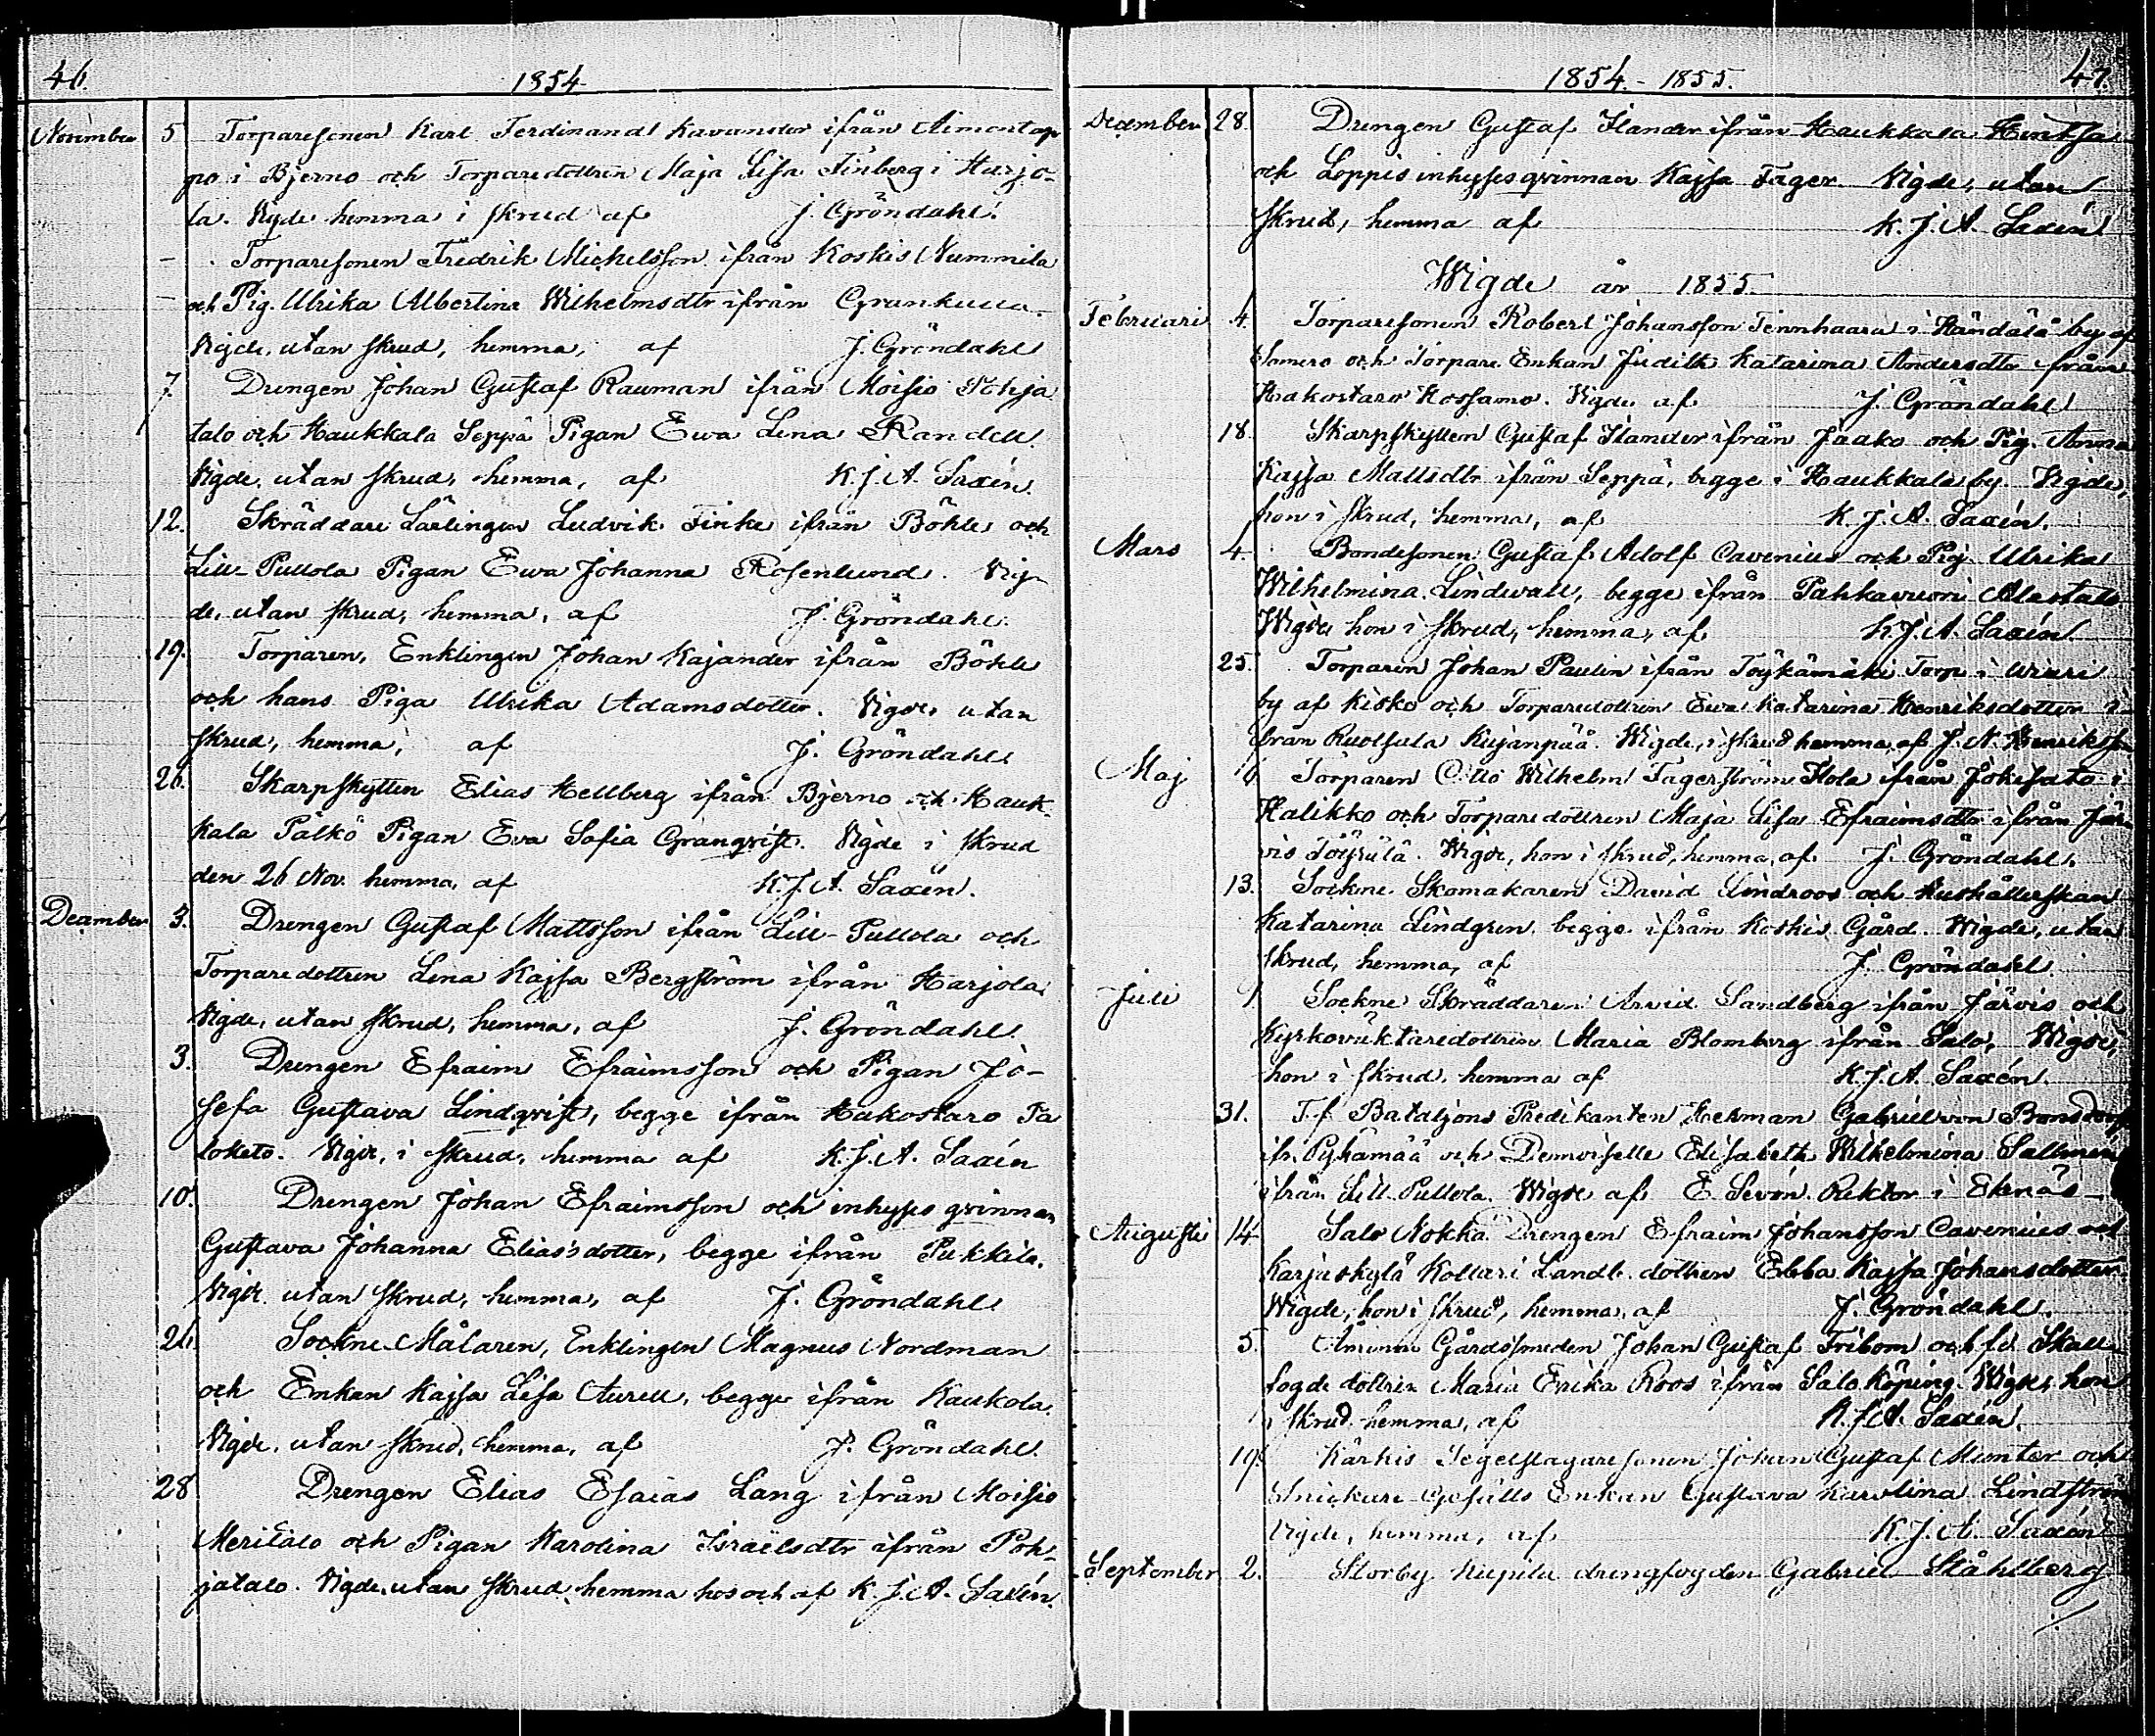 46. 1854
Novimber 5 Torparesonen Karl Ferdinand Kavander ifrån Aimontap
po i Bjerno och Torparedottren Maja Lisa Finberg i Harjo-
la. Vigde hemma i skrud af J. Gröndahl.
- Torparesonen Fredrik Michelsson ifrån Koskis Nummila
- och Pig. Ulrika Albertina Wilhelmsdtr ifrån Grankulla
Vigde, utan skrud, hemma, af J. Gröndahl
7 Drengen Johan Gustaf Rauman ifrån Moisio Pohja
talo och Haukkala Seppä Pigan Ewa Lena Randell.
Vigde, utan skrud, hemma, af K. J. A. Saxén.
12. Skräddare Lärlingen Ludvik Finke ifrån Böhle och
Lill-Pullola Pigan Ewa Johanna Rosenlund. Vig-
de, utan skrud, hemma, af J. Gröndahl.
19. Torparen, Enklingen Johan Kajander ifrån Böhle
och hans Piga Ulrika Adamsdotter. Vigde, utan
skrud, hemma, af J. Gröndahl
26. Skarpskytten Elias Hellberg ifrån Bjerno och Hauk-
kala Pälkö Pigan Eva Sofia Granqvist. Vigde i skrud
den 26 Nov. hemma, af K. J. A. Saxén.
December 3. Drengen Gustaf Mattsson ifrån Lill-Pullola och
Torparedottren Lena Kajsa Bergström ifrån Harjola
Vigde, utan skrud, hemma, af J. Gröndahl.
3. Drengen Efraim Efraimsson och Pigan Jo-
sefa Gustava Lindqvist, begge ifrån Hakostaro Ta
loketo. Vigde, i skrud, hemma af K. J. A. Saxén
10. Drengen Johan Efraimsson och inhyses qvinnan
Gustava Johanna Elias'sdotter, begge ifrån Pukkila.
Vigde utan skrud, hemma, af J. Gröndahl
26. Sockne-Målaren, Enklingen Magnus Nordman
och Enkan Kajsa Lisa Aurell, begge ifrån Kaukola.
Vigde, utan skrud, hemma, af J. Gröndahl.
28 Drengen Elias Esaias Lang ifrån Moisio
Meritalo och Pigan Karolina Israëlsdtr ifrån Poh-
jatalo. Vigde, utan skrud hemma hos och af K. J. A. Saxén.
1854.-1855. 47.
December 28. Drengen Gustaf Ilander ifrån Haukkala Hintsa
och Loppis inhysesqvinnan Kajsa Fager. Vigde, utan
skrud, hemma af K. J. A. Saxén
Wigde år 1855.
Februari 4. Torparesonen Robert Johansson Tennhaara i Händälä by af
Somero och Torpare Enkan Judith Katarina Andersdtr från
Hakostaro Kossamo. Vigde af J. Gröndahl
18. Skarpskytten Gustaf Ilander ifrån Jaako och Pig. Anna
Kajsa Mattsdtr ifrån Seppä, begge i Haukkala by. Vigde,
hon i skrud, hemma, af K. J. A. Saxén.
Mars 4. Bondesonen Gustaf Adolf Cavenius och Pig. Ulrika
Wilhelmina Lindwall, begge ifrån Pahkavuori Alastalo
Wigde hon i skrud, hemma, af K. J. A. Saxén
25. Torparen Johan Paulin ifrån Töykämäki Torp i
by af Kisko och Torparedottren Ewa Katarina Henriksdotter i-
från Ruotsala Kujanpää. Wigde, i skrud hemma, af J. N. Henriksson
Maj 6 Torparen Otto Wilhelm Fagerström Hola ifrån Jokisato i
Halikko och Torparedottren Maja Lisa Efraimsdtr ifrån Jär-
vis Töyrylä. Wigde, hon i skrud, hemma, af J. Gröndahl.
13. Sockne Skomakaren David Lindroos och Hushållerskan
Katarina Lindgren, begge ifrån Koskis Gård. Wigde, utan
skrud, hemma, af J. Gröndahl
Juli 1 Sockne Skräddaren Arvid Sandberg ifrån Järvis och
Kyrkoväktaredottren Maria Blomberg ifrån Salo, Wigde,
hon i skrud, hemma af K. J. A. Saxén.
31. T.f. Bataljons Predikanten Herman Gabriel von Bonsdorf
ifr. Pyhämää och Demoiselle Elisabeth Wilhelmina Sallmén
ifrån Lill Pullola. Wigde af E. Sevón. Rektor i Ekenäs-
Augusti 14 Salo Nokka Drengen Efraim Johansson Cavenius och
Karjaskylä Kollari Landb. dottren Ebba Kajsa Johansdotter
Wigde, hon i skrud, hemma, af J. Gröndahl.
5. Åminne Gårdssmeden Johan Gustaf Fribom och fd. Skall-
fogde dottren Maria Erika Roos ifrån Salo Köping. Wigde, hon
i skrud hemma, af K. J. A. Saxén.
19. Kärkis Tegelslagaresonen Johan Gustaf Munter och
Snickare Gesälls Enkan Gustava Karolina Lindström
Vigde, hemma, af K. J. A. Saxén
September 2. Storby drengfogden Gabriel Ståhlberg
./.